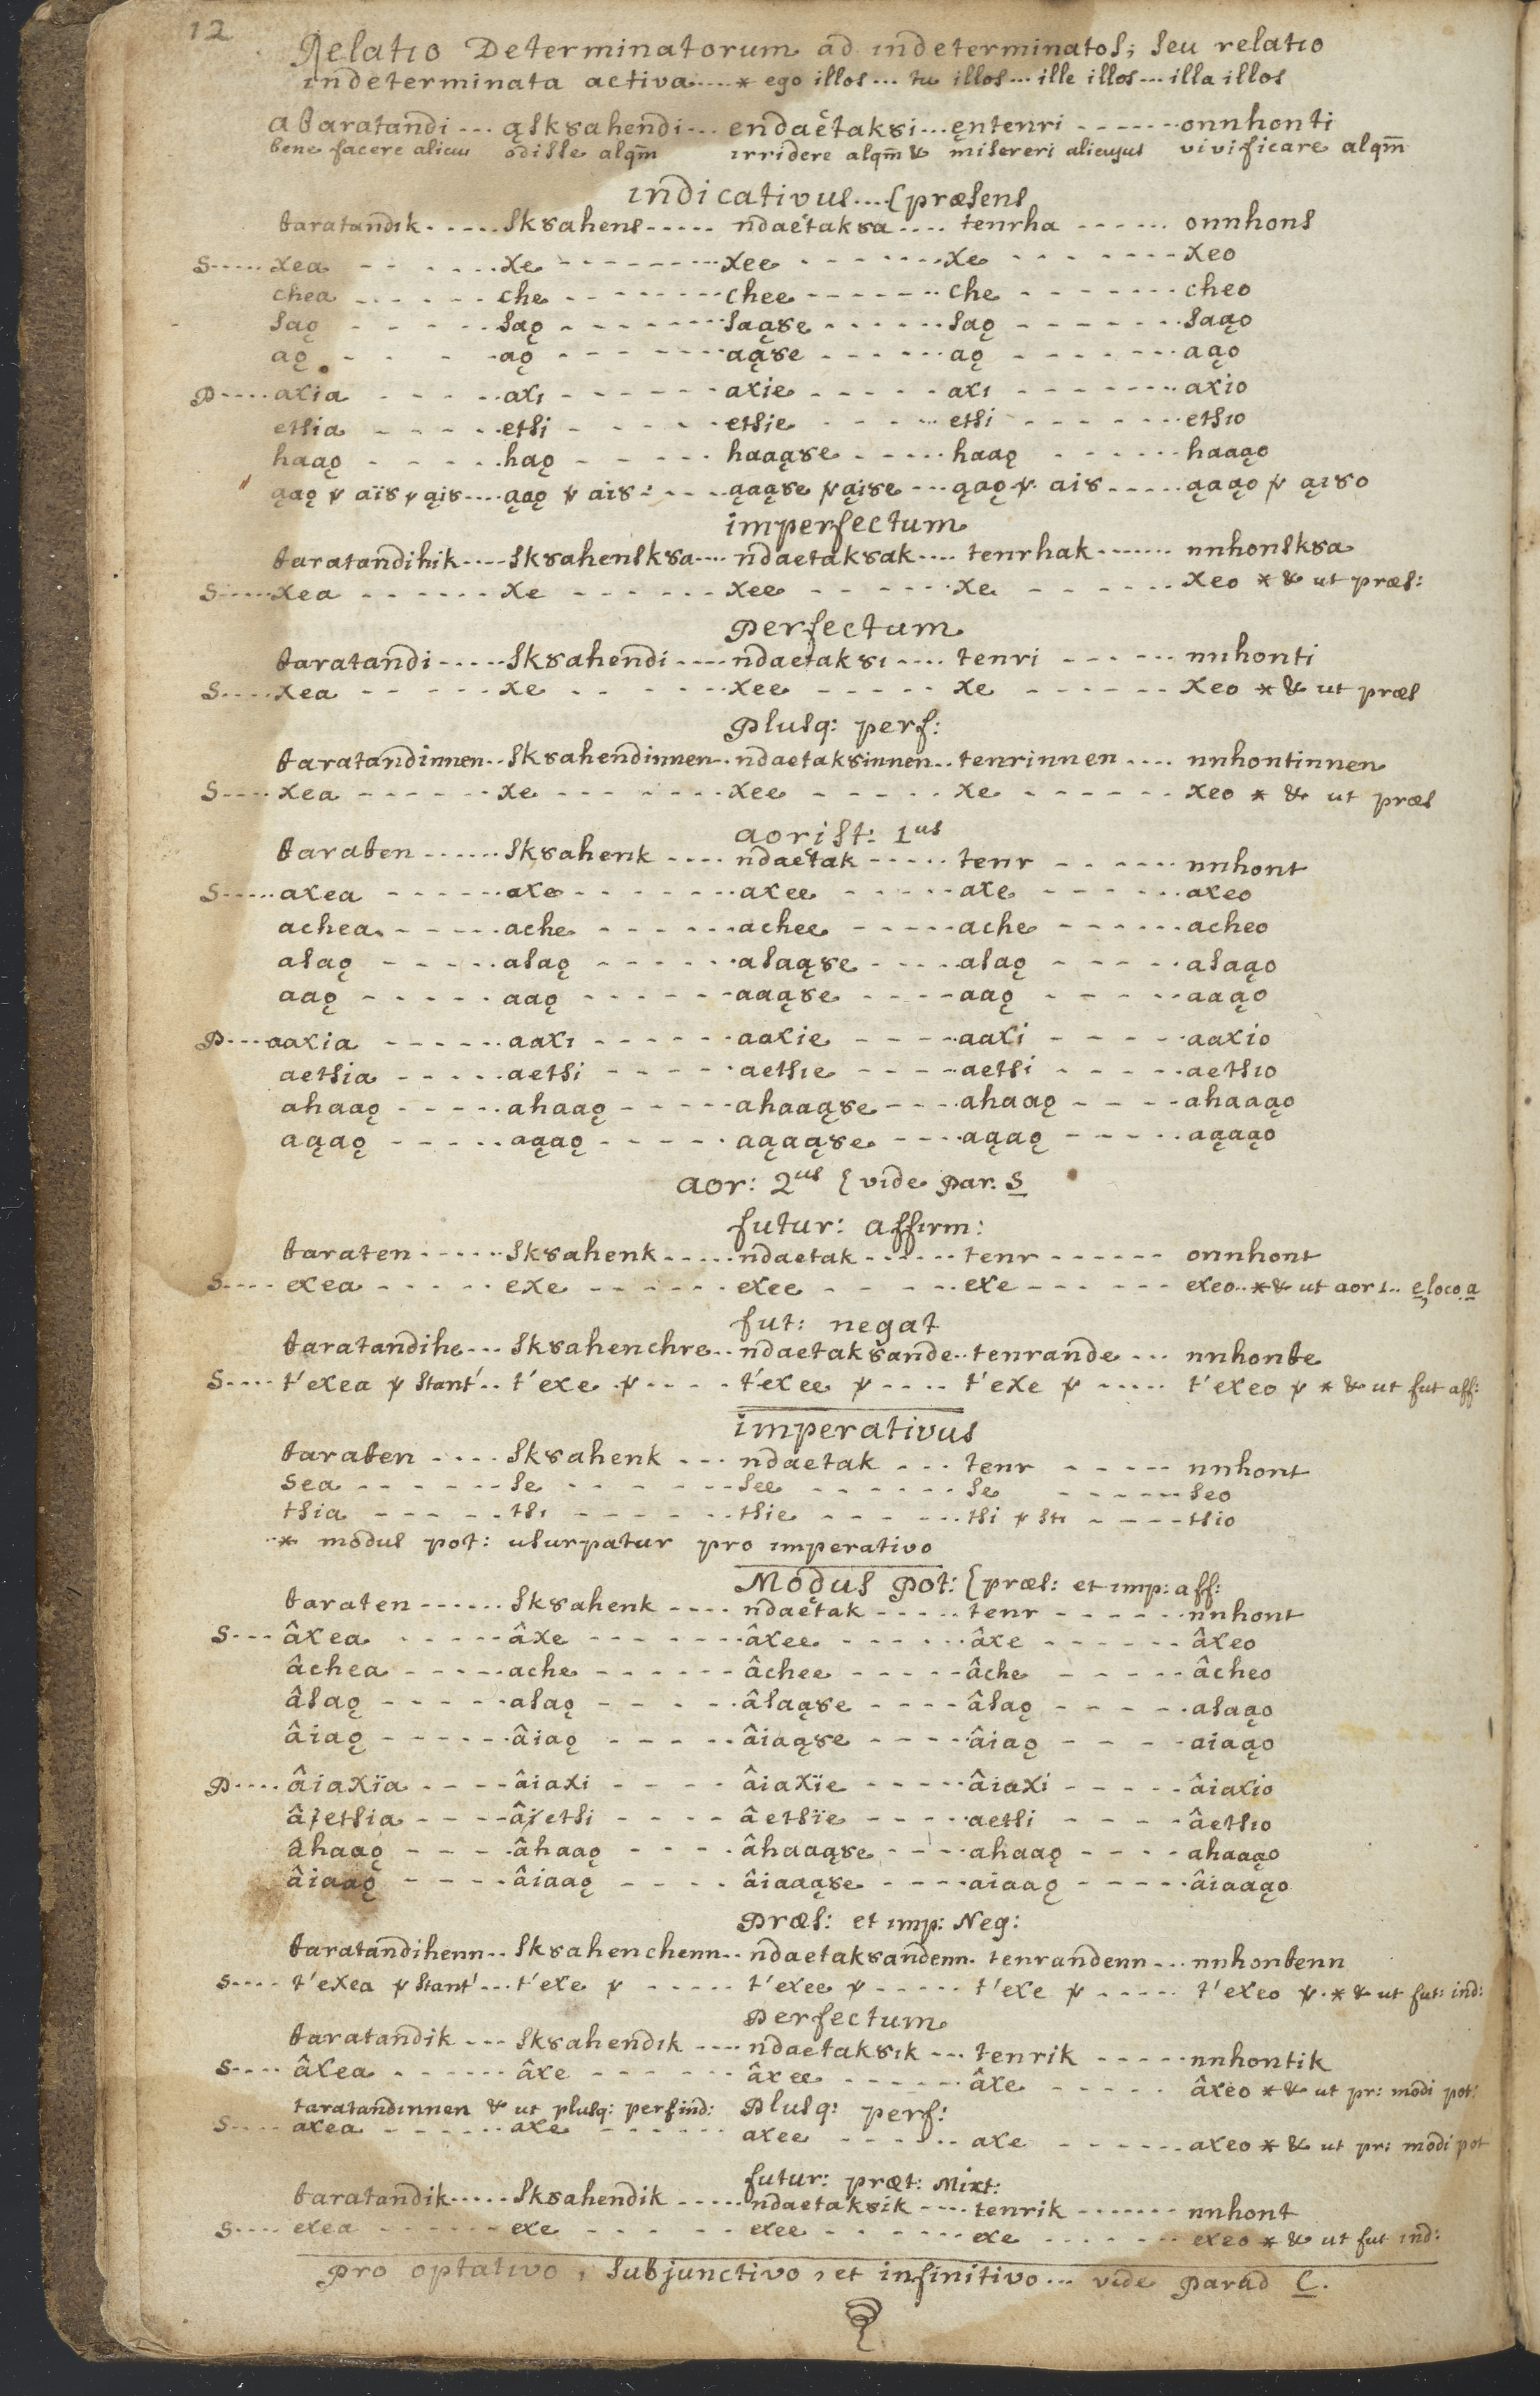 12
Relatio Determinatorum ad indeterminatos; seu relatio
indeterminata activa....* ego illos... tu illos... ille illos... illa illos
ataratandi... ąskȣahendi... endaetakȣi... ęntenri ------- onnhonti
bene facere alicui odisse alqm̄ irridere alqm̄ & misereri alicujus vivificare alqm̄
indicativus....{præsens
taratandik...... skȣahens..... ndaetakȣa.... tenrha ------ onnhons
S..... xea ------ xe --------- xee ------- xe ------- xeo
chea ------ che -------- chee ------- che ------- cheo
saǫ ----- saǫ -------- saąȣe ------ saǫ ------- saąo
aǫ ----- aǫ -------- aąȣe ------ aǫ ------- aąo
P.... axia ----- axi ------ axie ----- axi ------- axio
etsia ----- etsi ------ etsie ----- etsi ------- etsio
haaǫ ----- haǫ ------ haaąȣe ----- haaǫ ------ haaąo
ąaǫ ꝟ aïȣ ꝟ ąiȣ.... ąaǫ ꝟ aiȣ: ---- ąaąȣe ꝟ ąiȣe --- ąaǫ ꝟ. aiȣ ----- ąaąo ꝟ ąiȣo
imperfectum
taratandihik.... skȣahenskȣa.... ndaetakȣak.... tenrhak ------- nnhonskȣa
S..... xea ------- xe ------ xee ------ xe ------ xeo * & ut præs:
Perfectum
taratandi..... skȣahendi.... ndaetakȣi.... tenri ------ nnhonti
S.... xea ------ xe ------ xee ----- xe ------ xeo * & ut præs
Plusq: perf:
taratandinnen.. skȣahendinnen.. ndaetakȣinnen.. tenrinnen.... nnhontinnen
S.... xea ------ xe ------- xee ----- xe ------ xeo * & ut præs
aorist: 1us
taraten...... skȣahenk.... ndaetak ----- tenr ------ nnhont
S..... axea ------ axe ------- axee ----- axe ------ axeo
achea ----- ache ------ achee ----- ache ------ acheo
asaǫ ----- asaǫ ------ asaąȣe ---- asaǫ ----- asaąo
aaǫ ----- aaǫ ------ aaąȣe ---- aaǫ ----- aaąo
P... aaxia ------ aaxi ------ aaxie ---- aaxi ----- aaxio
aetsia ----- aetsi ----- aetsie ---- aetsi ----- aetsio
ahaaǫ ----- ahaaǫ ----- ahaaąȣe ---- ahaaǫ ---- ahaaąo
aąaǫ ----- aąaǫ ----- aąaąȣe ---- aąaǫ ----- aąaąo
aor: 2us {vide Par. S
futur: affirm:
taraten...... skȣahenk..... ndaetak ------ tenr ------ onnhont
S.... exea ----- exe ------ exee ------ exe ------ exeo..*& ut aor 1.. e, loco. a
fut: negat
taratandihe... skȣahenchre.. ndaetakȣande.. tenrande... nnhonte
S.... t'exea ꝟ stant'.. t'exe ꝟ ----- t'exee ꝟ .... t'exe ꝟ ..... t'exeo ꝟ * & ut fut aff:
imperativus
taraten.... skȣahenk... ndaetak... tenr ----- nnhont
sea ------ se ------- see ------- se ------ seo
tsia ----- tsi ------ tsie ------ tsi ꝟ sti ---- tsio
* modus pot: usurpatur pro imperativo
Modus Pot: {præs: et imp: aff:
taraten...... skȣahenk.... ndaętak ----- tenr ------ nnhont
S... âxea ----- âxe ------- âxee ------ âxe ------ âxeo
âchea ----- ache ------ âchee ----- âche ----- âcheo
âsaǫ ----- asaǫ ----- âsaąȣe ---- âsaǫ ----- asaąo
âiaǫ ------ âiaǫ ----- âiaąȣe ---- âiaǫ ---- aiaąo
P.... âiaxïa ---- âiaxi ---- âiaxïe ----- âiaxi ----- âiaxio
âietsia ---- âietsi ---- âetsïe ----- aetsi ---- âetsio
âhaaǫ ---- âhaaǫ ---- âhaaąȣe --- ahaaǫ ---- ahaaąo
âiaaǫ ---- âiaaǫ ---- âiaaąȣe ---- aiaaǫ ----- âiaaąo
Præs: et imp: Neg:
taratandihenn.. skȣahenchenn.. ndaetakȣandenn. tenrandenn... nnhontenn
S.... t'exea ꝟ stant'... t'exe ꝟ ----- t'exee ꝟ ----- t'exe ꝟ ----- t'exeo ꝟ. * & ut fut: ind:
Perfectum
taratandik... skȣahendik.... ndaetakȣik... tenrik ----- nnhontik
S.... âxea ------ âxe ------ âxee ------ âxe ----- âxeo * & ut pr: modi pot:
taratandinnen & ut plusq: perf ind: Plusq: perf:
S.... axea ------ axe ------ axee ------ axe ------ axeo * & ut pr: modi pot
futur: præt: Mixt:
taratandik..... skȣahendik ----- ndaetakȣik.... tenrik ------- nnhont
S.... exea ------ exe ----- exee ------- exe ------- exeo * & ut fut ind:
Pro optativo, subjunctivo, et infinitivo... vide Parad C.